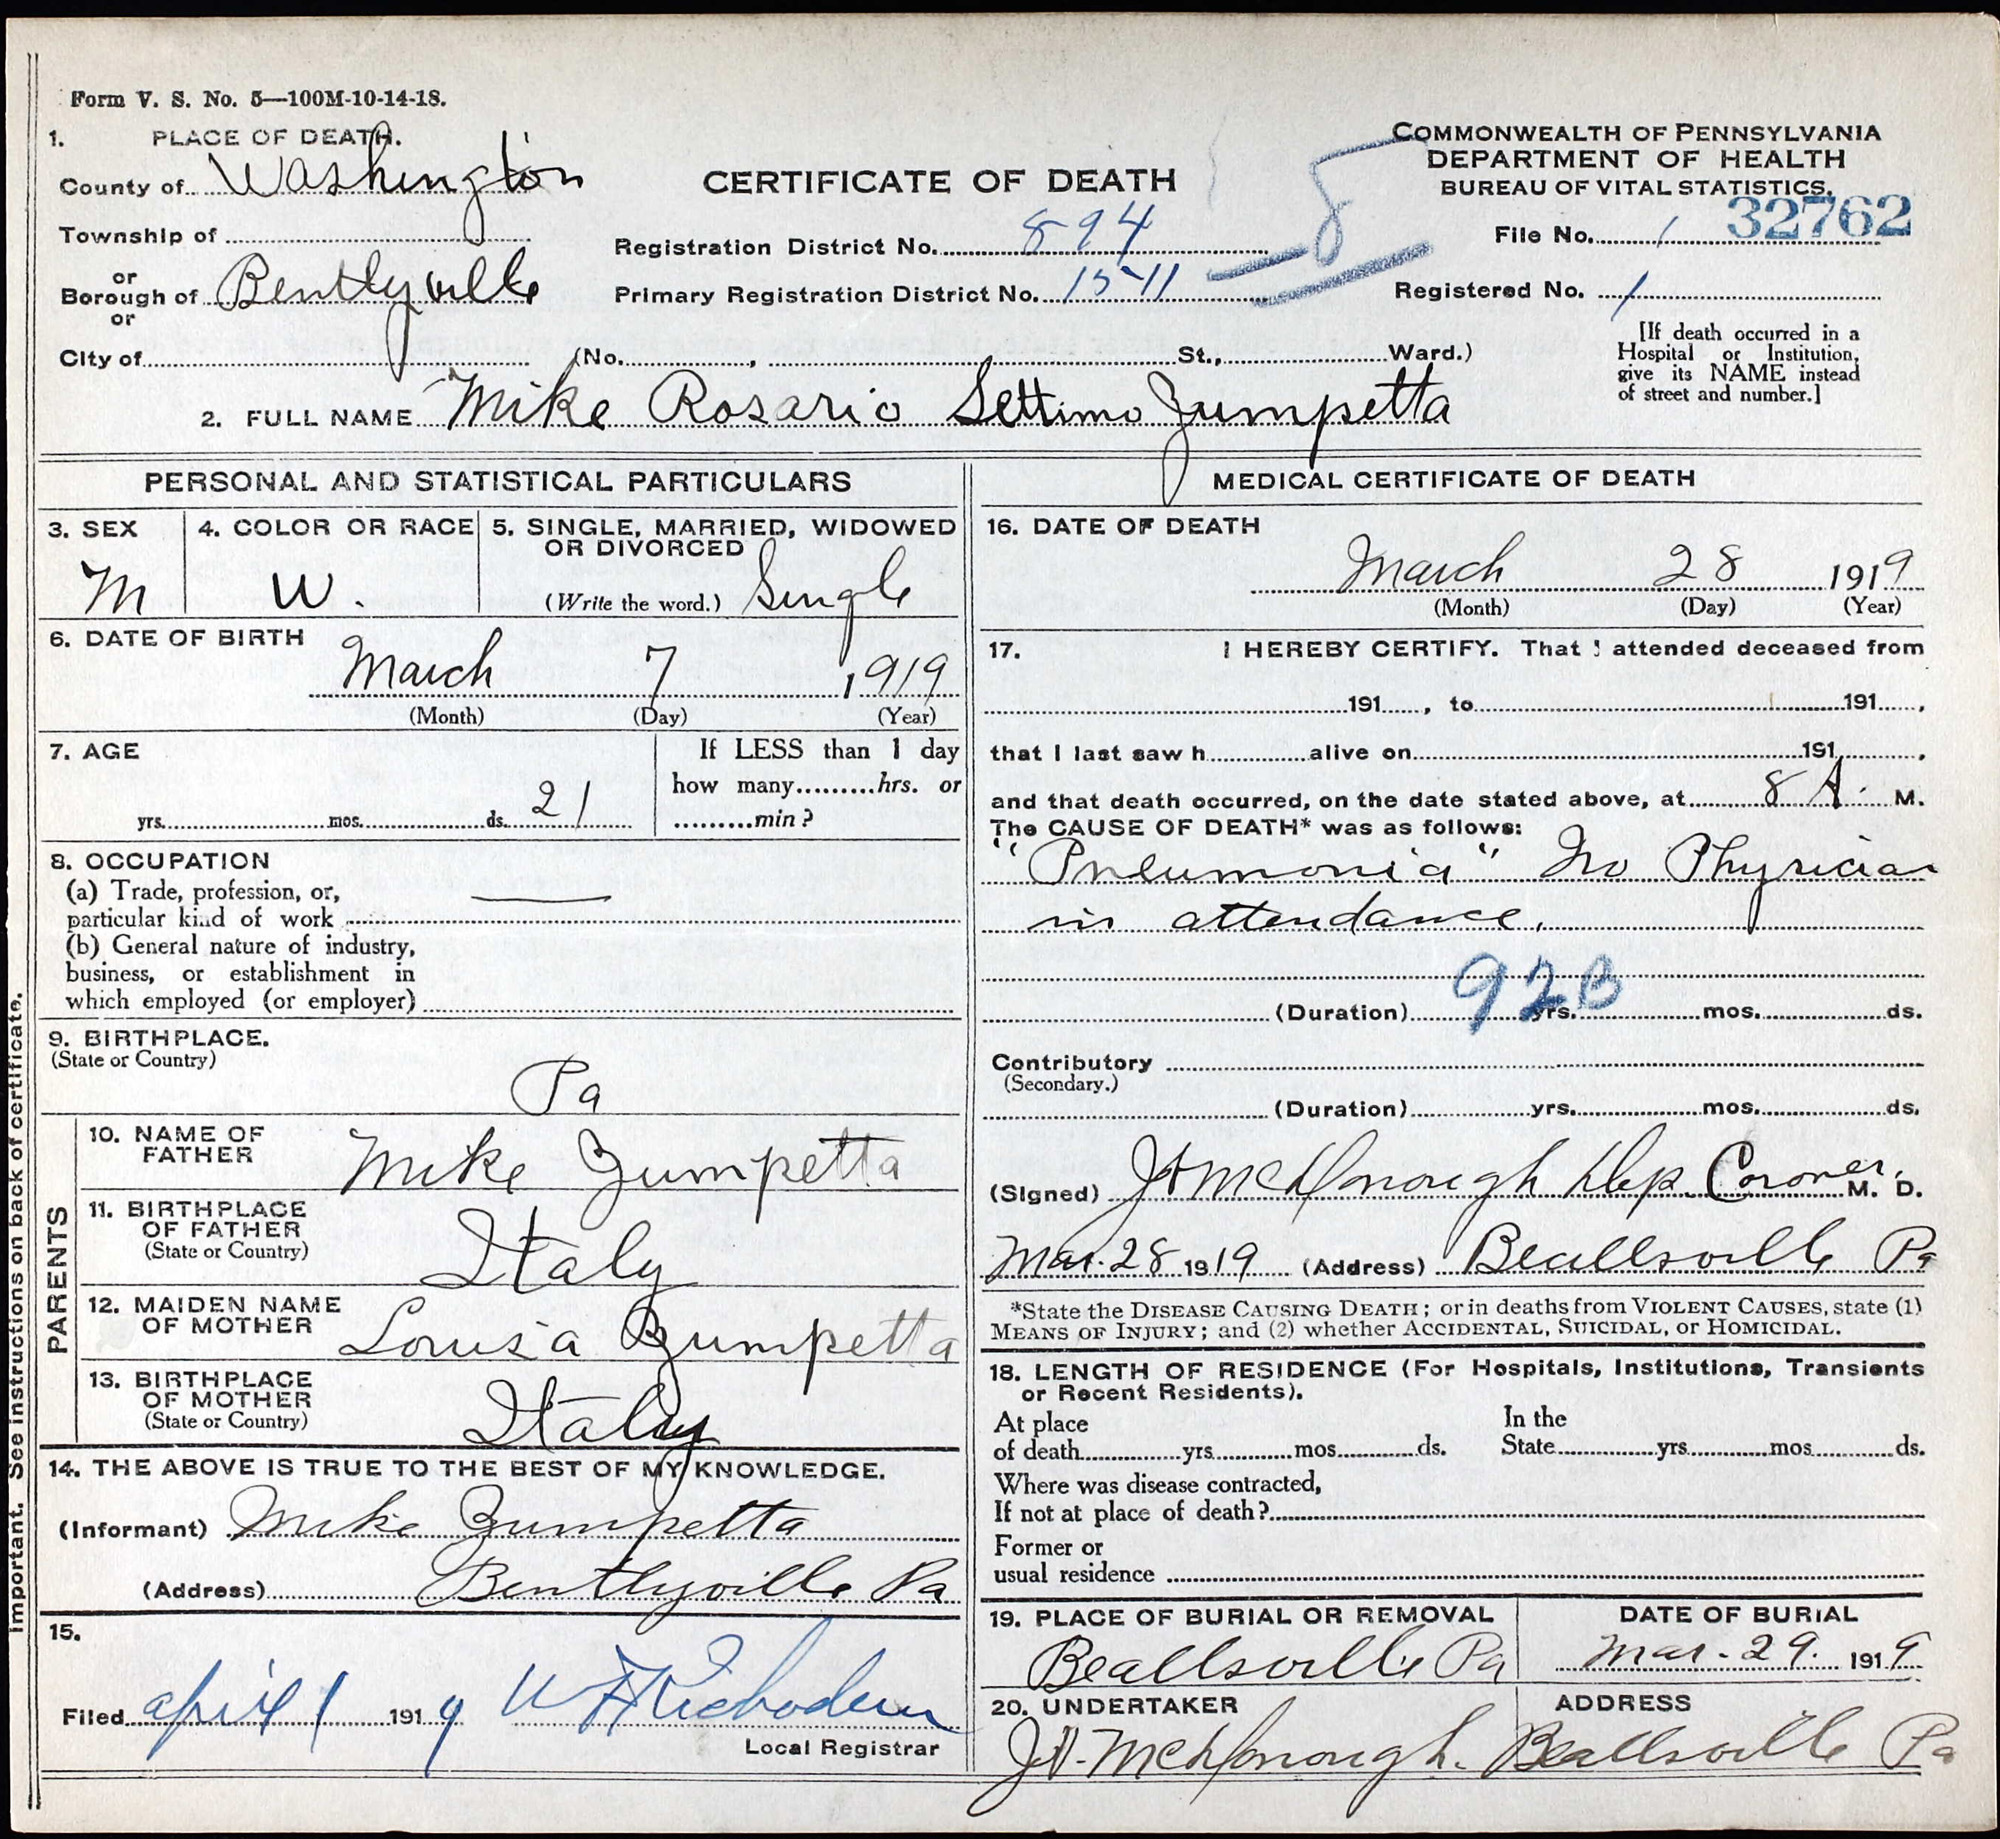 Form V. S. No. 5—100M-10-14-18.
1. PLACE OF DEATH.
County of Washington
Township of
or
Borough of Bentlyville
or
City of (No. , St., Ward.)
CERTIFICATE OF DEATH
Registration District No. 894
Primary Registration District No. 15-11
COMMONWEALTH OF PENNSYLVANIA
DEPARTMENT OF HEALTH
BUREAU OF VITAL STATISTICS.
32762
File No. 1
Registered No. 1
[If death occurred in a
Hospital or Institution,
give its NAME instead
of street and number.]
2. FULL NAME Mike Rosario Settimo Zumpetta
PERSONAL AND STATISTICAL PARTICULARS
3. SEX
M
4. COLOR OR RACE
W.
5. SINGLE, MARRIED, WIDOWED
OR DIVORCED
(Write the word.) Single
6. DATE OF BIRTH
March 7, 1919
(Month) (Day) (Year)
7. AGE
yrs. mos. ds. 21
If LESS than 1 day
how many hrs. or
min?
8. OCCUPATION
(a) Trade, profession, or,
particular kind of work —
(b) General nature of industry,
business, or establishment in
which employed (or employer)
9. BIRTHPLACE.
(State or Country)
Pa
PARENTS
10. NAME OF
FATHER Mike Zumpetta
11. BIRTHPLACE
OF FATHER
(State or Country) Italy
12. MAIDEN NAME
OF MOTHER Louisa Zumpetta
13. BIRTHPLACE
OF MOTHER
(State or Country) Italy
14. THE ABOVE IS TRUE TO THE BEST OF MY KNOWLEDGE.
(Informant) Mike Zumpetta
(Address) Bentlyville Pa
15.
Filed april 1 1919
Local Registrar
Important. See instructions on back of certificate.
MEDICAL CERTIFICATE OF DEATH
16. DATE OF DEATH
March 28 1919
(Month) (Day) (Year)
17. I HEREBY CERTIFY. That I attended deceased from
191 , to 191 ,
that I last saw h alive on 191 ,
and that death occurred, on the date stated above, at 8 A. M.
The CAUSE OF DEATH* was as follows:
"Pneumonia" No Physician
in attendance.
92B
(Duration) yrs. mos. ds.
Contributory
(Secondary.)
(Duration) yrs. mos. ds.
(Signed) JH McDonough Dep. Coroner. M. D.
Mar. 28 1919 (Address) Beallsville Pa
*State the DISEASE CAUSING DEATH; or in deaths from VIOLENT CAUSES, state (1)
MEANS OF INJURY; and (2) whether ACCIDENTAL, SUICIDAL, or HOMICIDAL.
18. LENGTH OF RESIDENCE (For Hospitals, Institutions, Transients
or Recent Residents).
At place
of death yrs. mos. ds.
In the
State yrs. mos ds.
Where was disease contracted,
If not at place of death?
Former or
usual residence
19. PLACE OF BURIAL OR REMOVAL
Beallsville Pa
DATE OF BURIAL
Mar. 29. 1919
20. UNDERTAKER
JH. McDonough.
ADDRESS
Beallsville Pa